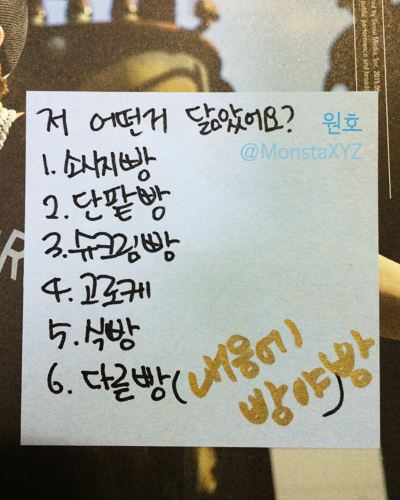 저 어떤거 닮았어요? 원호
@MonstaXYZ
1. 소시지빵
2. 단팥빵
3. 슈크림빵
4. 고로케
5. 식빵
6. 다른빵(
빵야)빵
by Seoul Media, Inc.
media, performance and